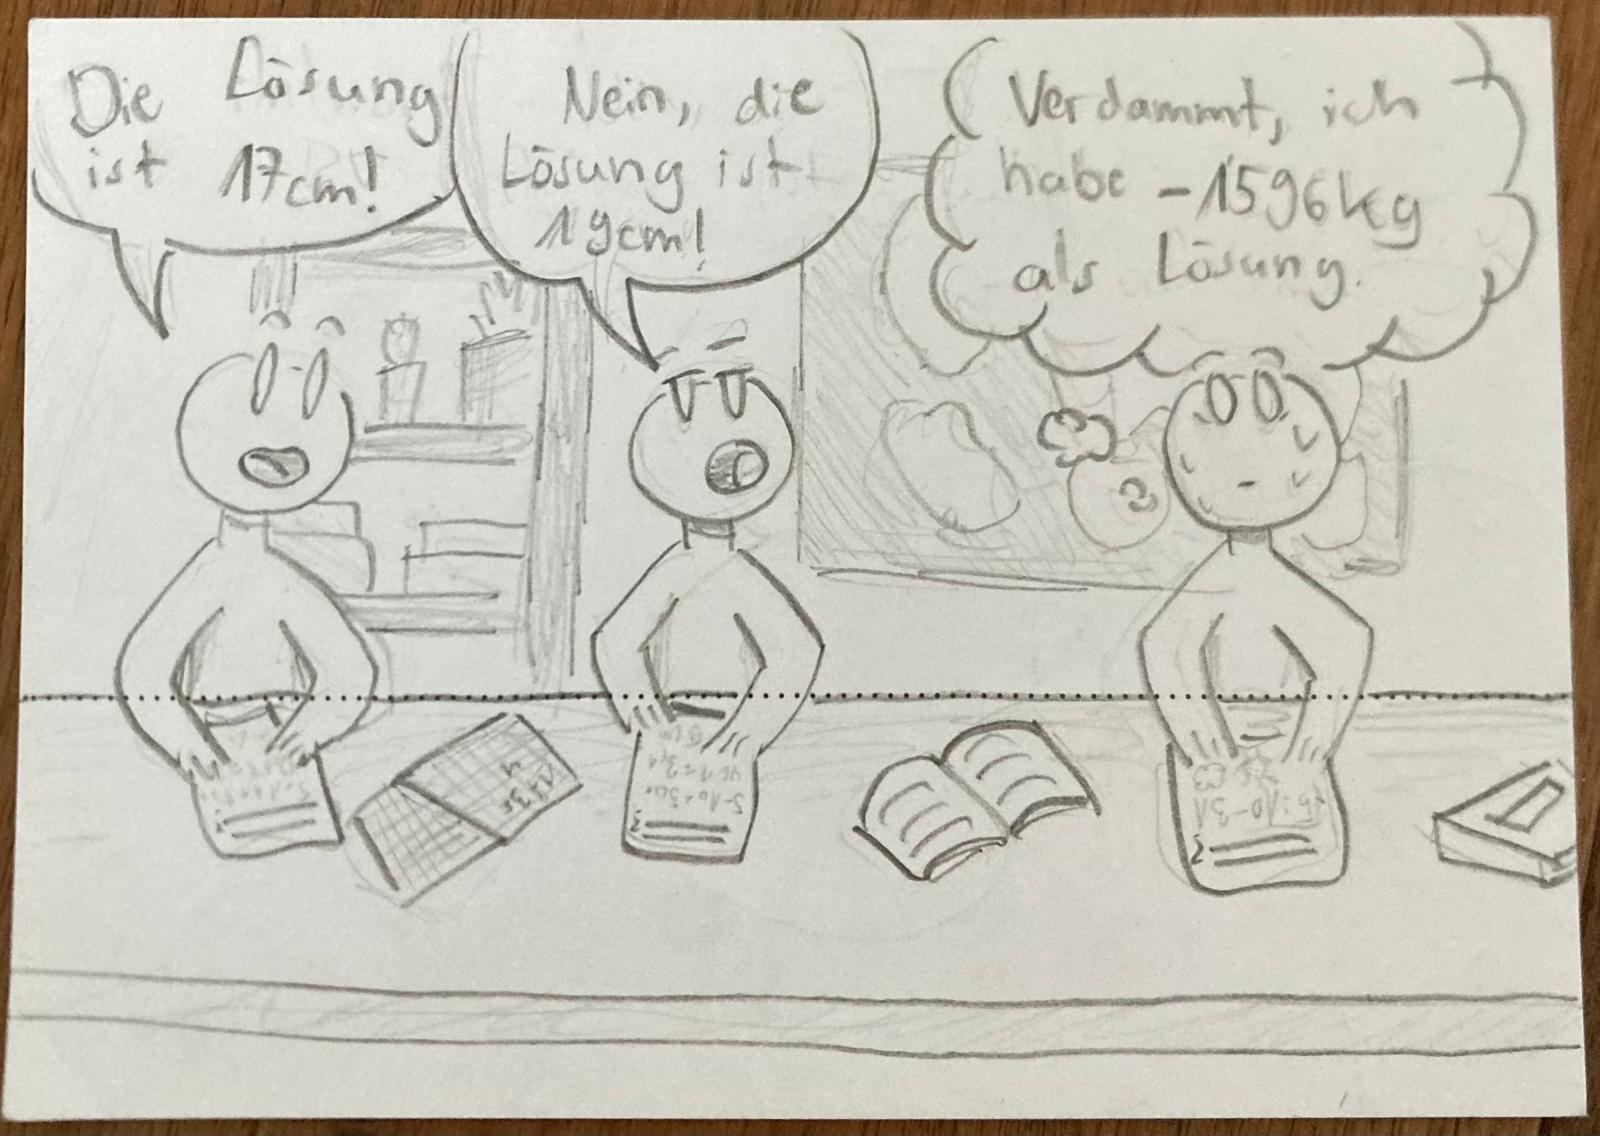 Die Lösung
ist 17cm!
Nein, die
Lösung ist
19cm!
Verdammt, ich
habe -1596kg
als Lösung.